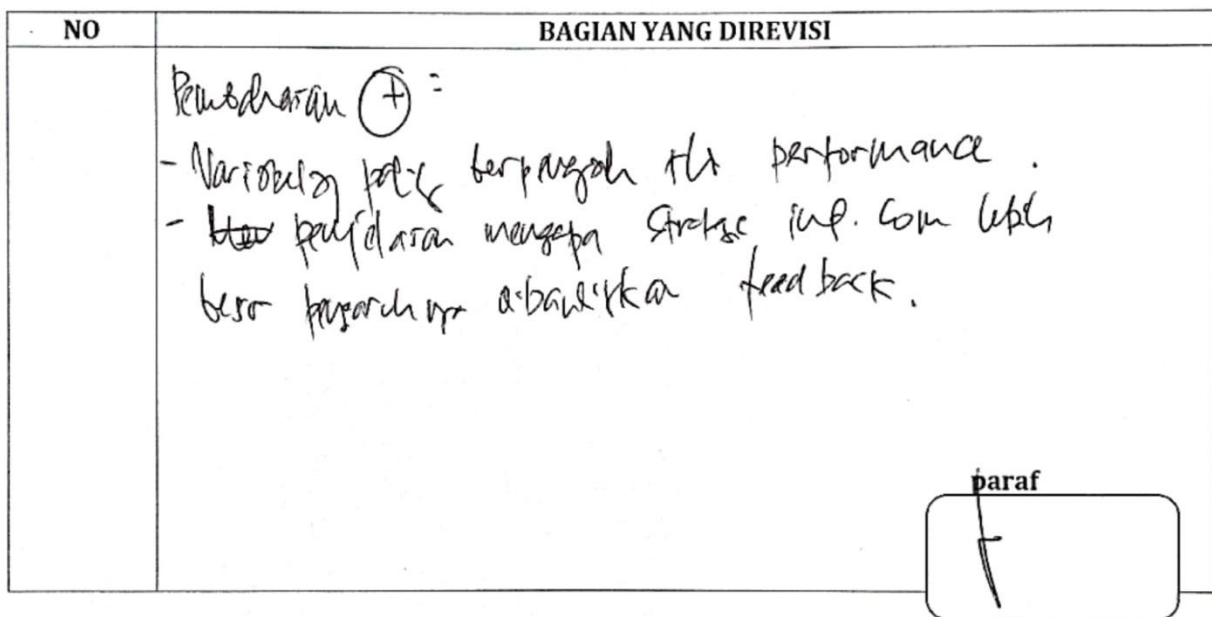 NO BAGIAN YANG DIREVISI
Pembahasan + :
- Variabel yg paling berpengaruh tht performance.
- penjelasan mengapa com lebih
besar pengaruhnya dibandingkan feedback.
paraf